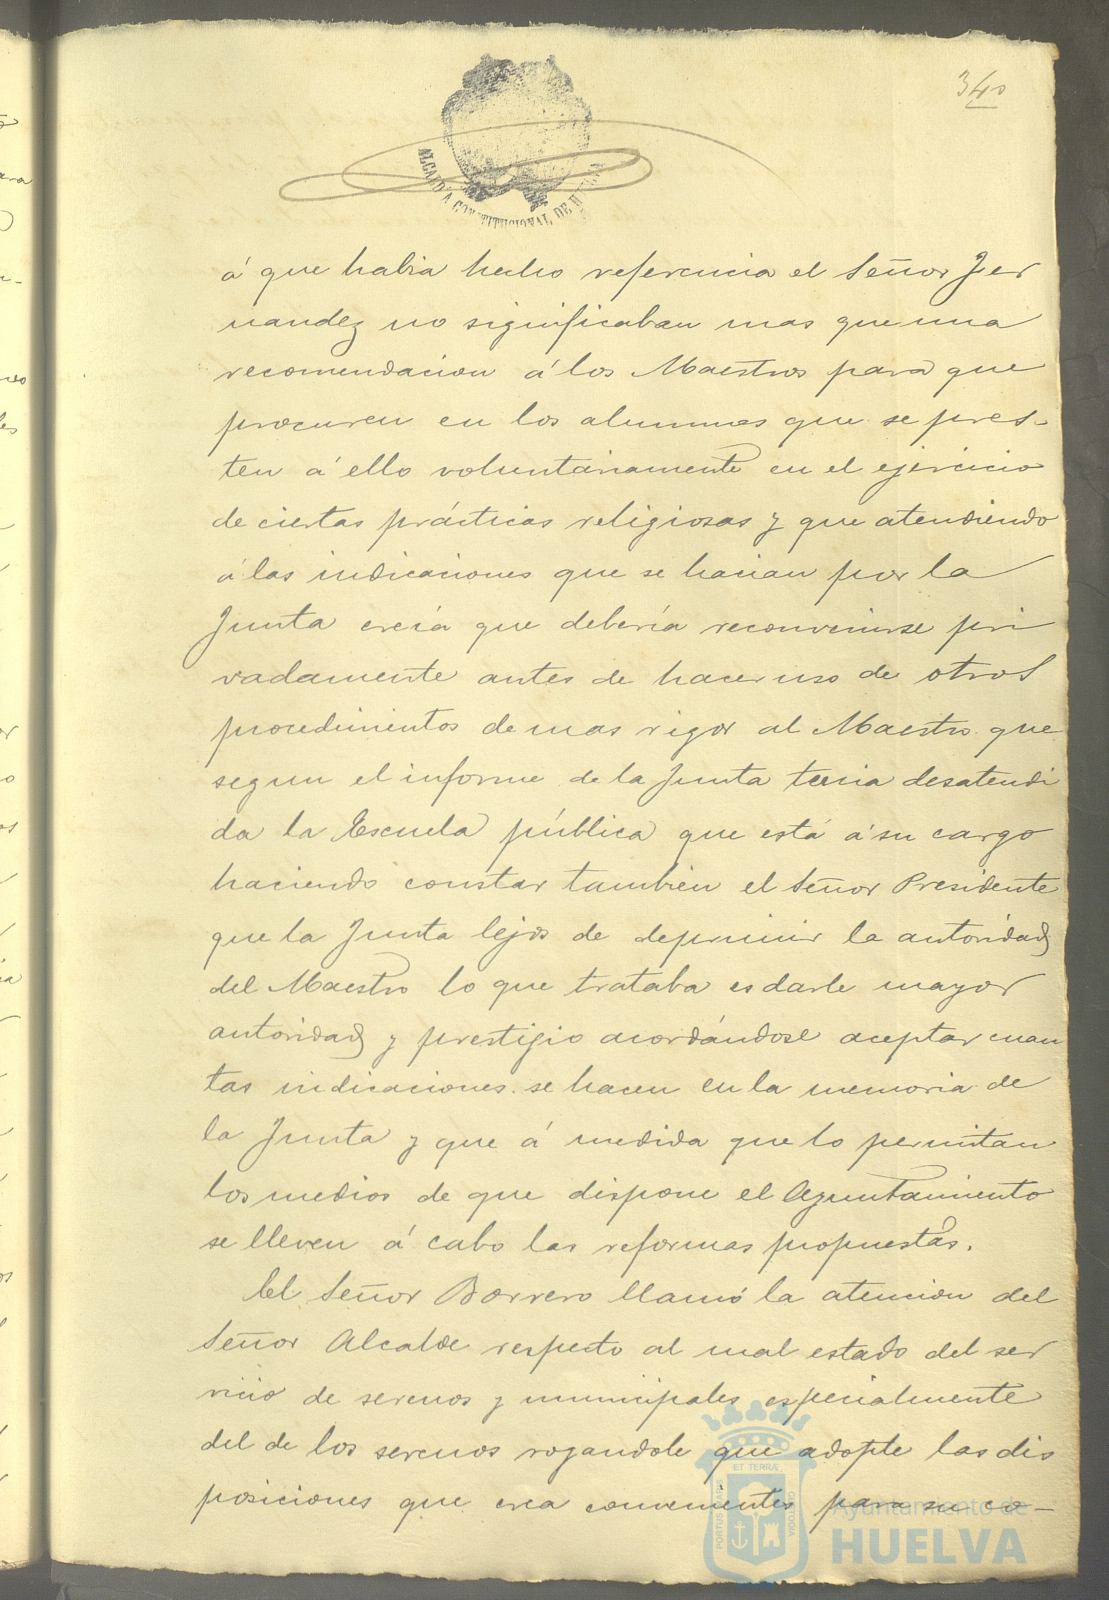 340
ALCALDÍA CONSTITUCIONAL DE HUELVA
á que habia hecho referencia el Señor Fer
nandez no significaban mas que una
recomendacion á los Maestros para que
procuren en los alumnos que se pres-
ten á ello voluntariamente en el ejercicio
de ciertas prácticas religiosas y que atendiendo
á las indicaciones que se hacian por la
Junta creia que debería reconvenirse pri
vadamente antes de hacer uso de otros
procedimientos de mas rigor al Maestro que
segun el informe de la Junta tenia desatendi
da la Escuela pública que está á su cargo
haciendo constar tambien el Señor Presidente
que la Junta lejos de deprimir la autoridad
del Maestro lo que trataba es darle mayor
autoridad y prestigio acordándose aceptar cuan
tas indicaciones se hacen en la memoria de
la Junta y que á medida que lo permitan
los medios de que dispone el Ayuntamiento
se lleven á cabo las reformas propuestas.
El Señor Borrero llamó la atencion del
Señor Alcalde respecto al mal estado del ser
vicio de serenos y municipales especialmente
del de los serenos rogandole que adopte las dis
posiciones que crea convenientes para su co-
PORTUS MARIS ET TERRÆ CUSTODIA
Ayuntamiento de
HUELVA